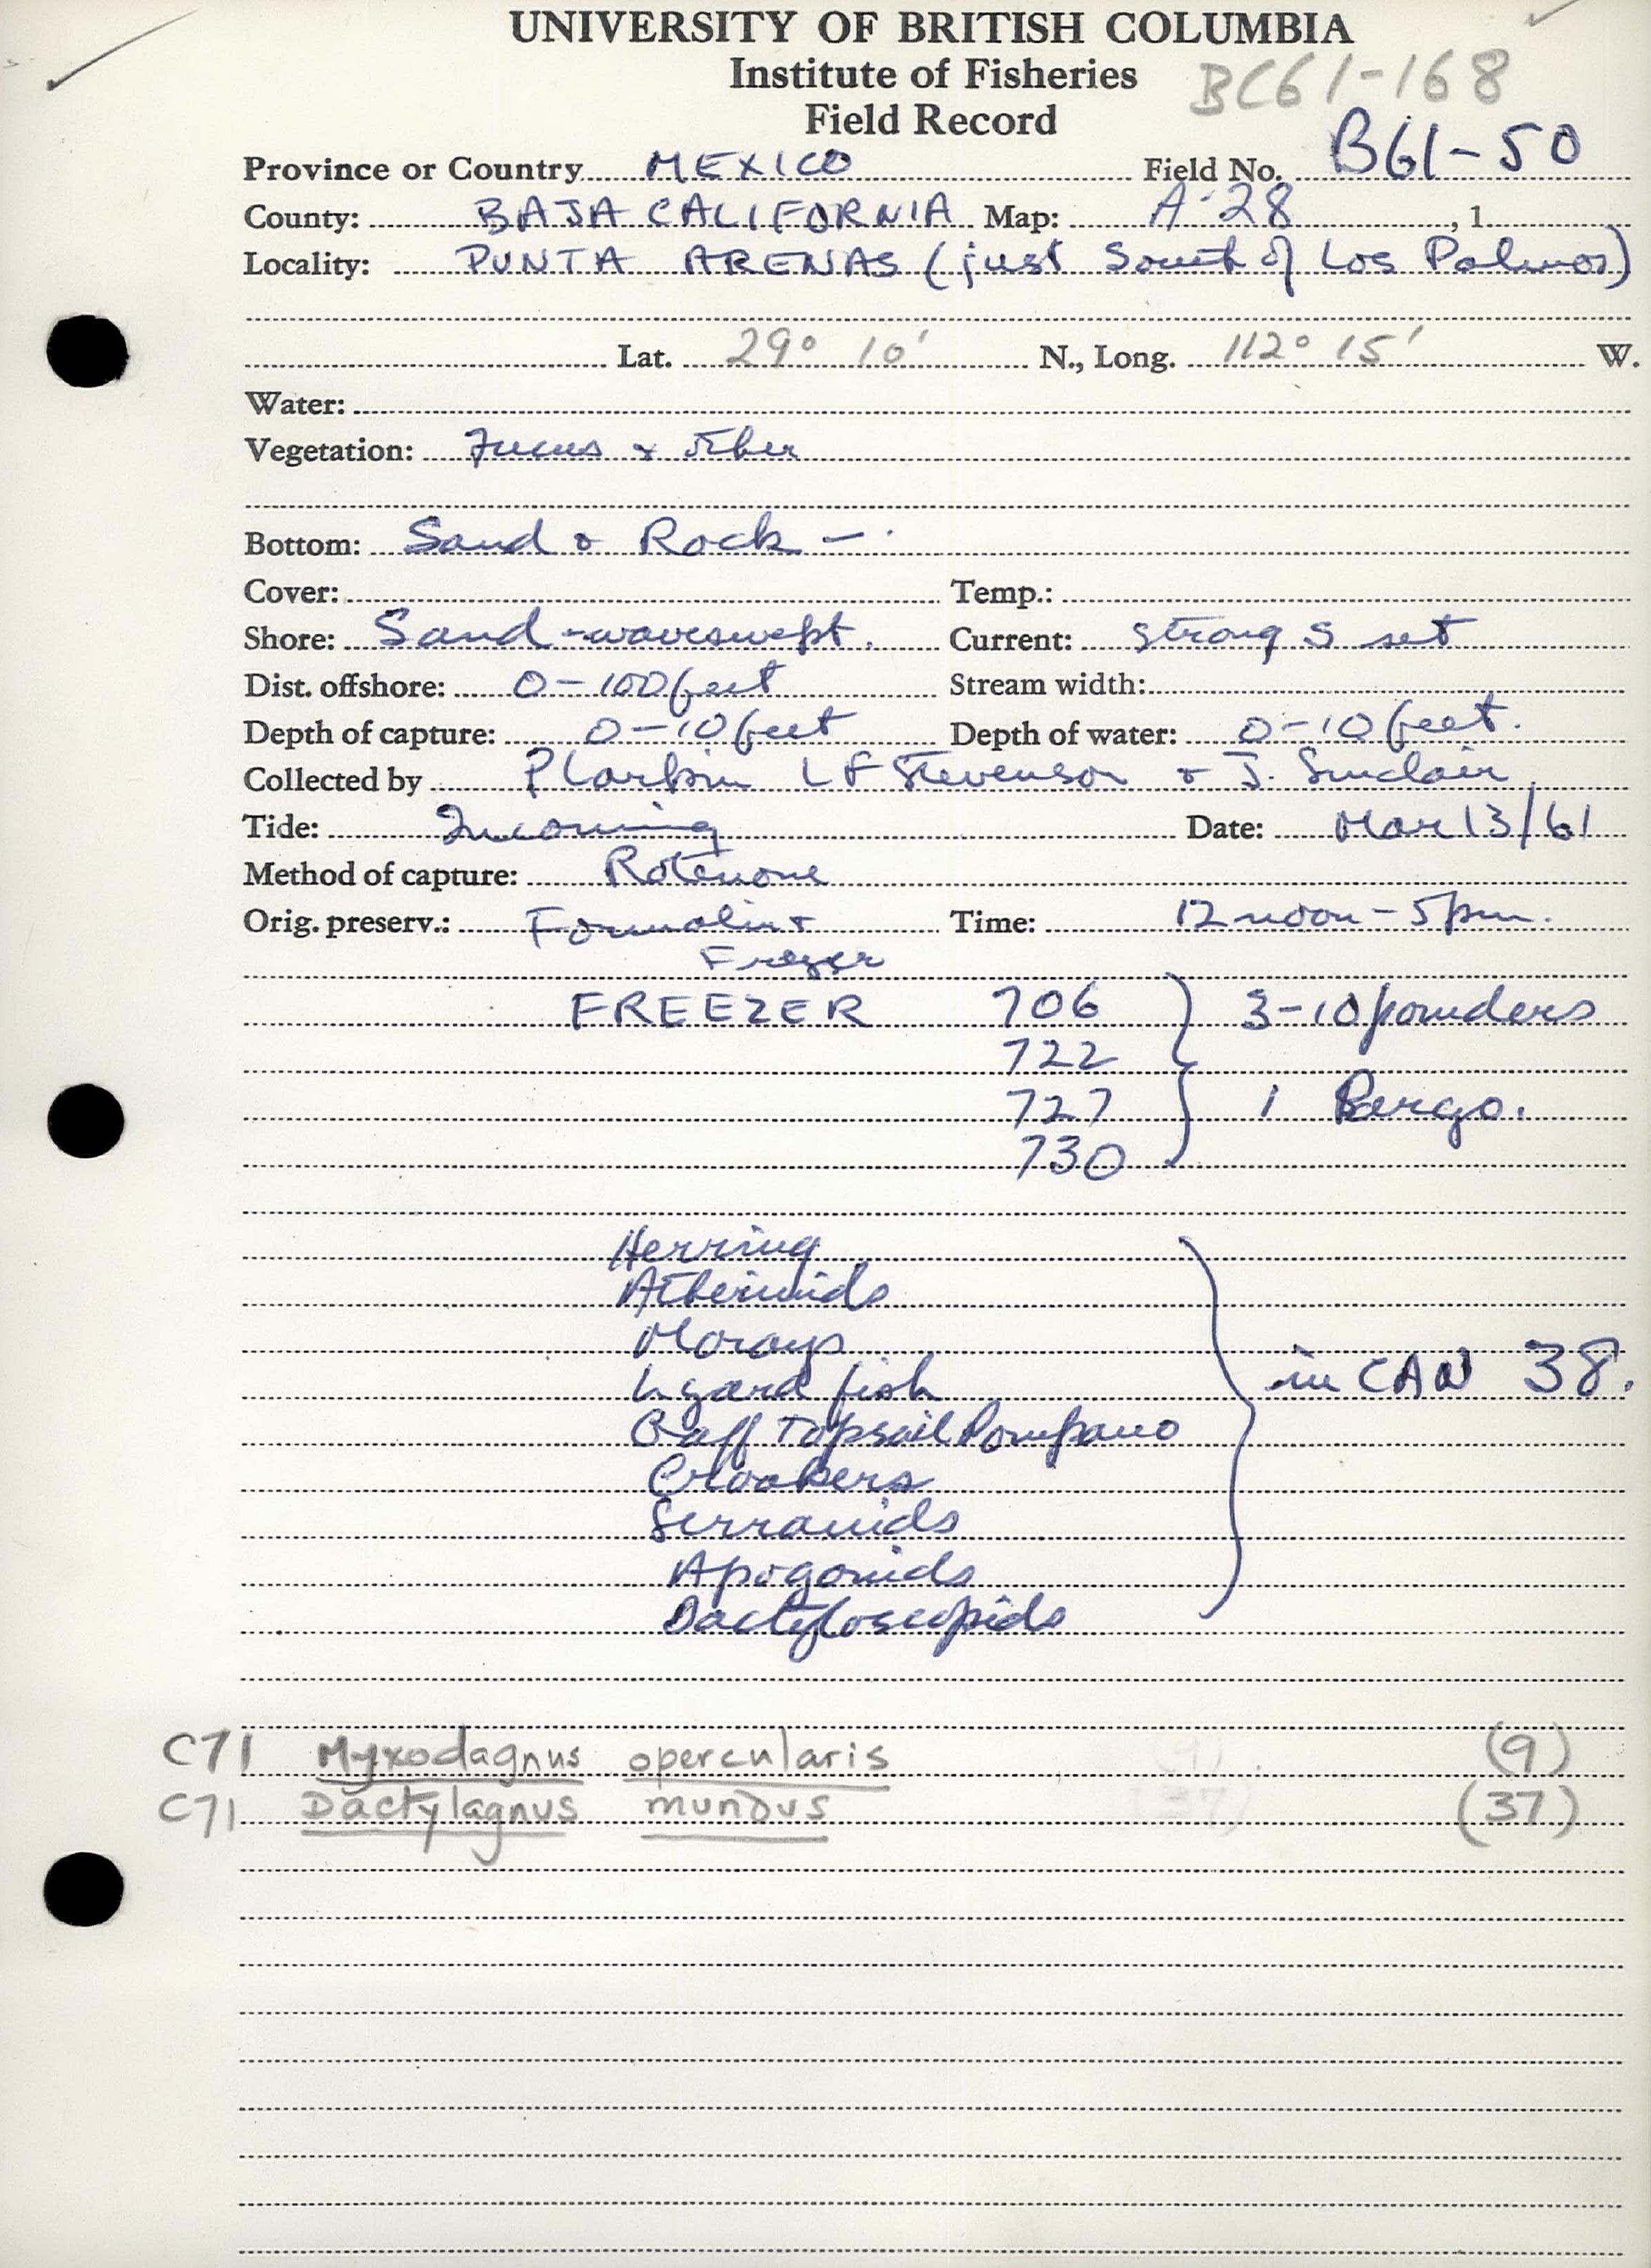 UNIVERSITY OF BRITISH COLUMBIA
Institute of Fisheries BC61-168
Field Record
Province or Country MEXICO Field No. B61-50
County: BAJA CALIFORNIA Map: A-28 , 1
Locality: PUNTA ARENAS (just South of Los Palmos)
Lat. 29° 10' N., Long. 112° 15' W.
Water:
Vegetation: Fucus + other
Bottom: Sand + Rock -
Cover: Temp.:
Shore: Sand - waveswept. Current: strong S set
Dist. offshore: 0-100 feet Stream width:
Depth of capture: 0-10 feet Depth of water: 0-10 feet.
Collected by P Larkin L F Stevenson + J. Sinclair
Tide: Incoming Date: Mar 13/61
Method of capture: Rotenone
Orig. preserv.: Formalin + Time: 12 noon - 5 pm.
FREEZER 706 3-10 pounders
722
727 1
730
Herring
Atherinids
Morays
Lizard fish in CAN 38.
Gaff Topsail Pompano
Croakers
Serranids
Apogonids
Dactyloscopids
C71 Myxodagnus opercularis (9)
C71 Dactylagnus mundus (37)